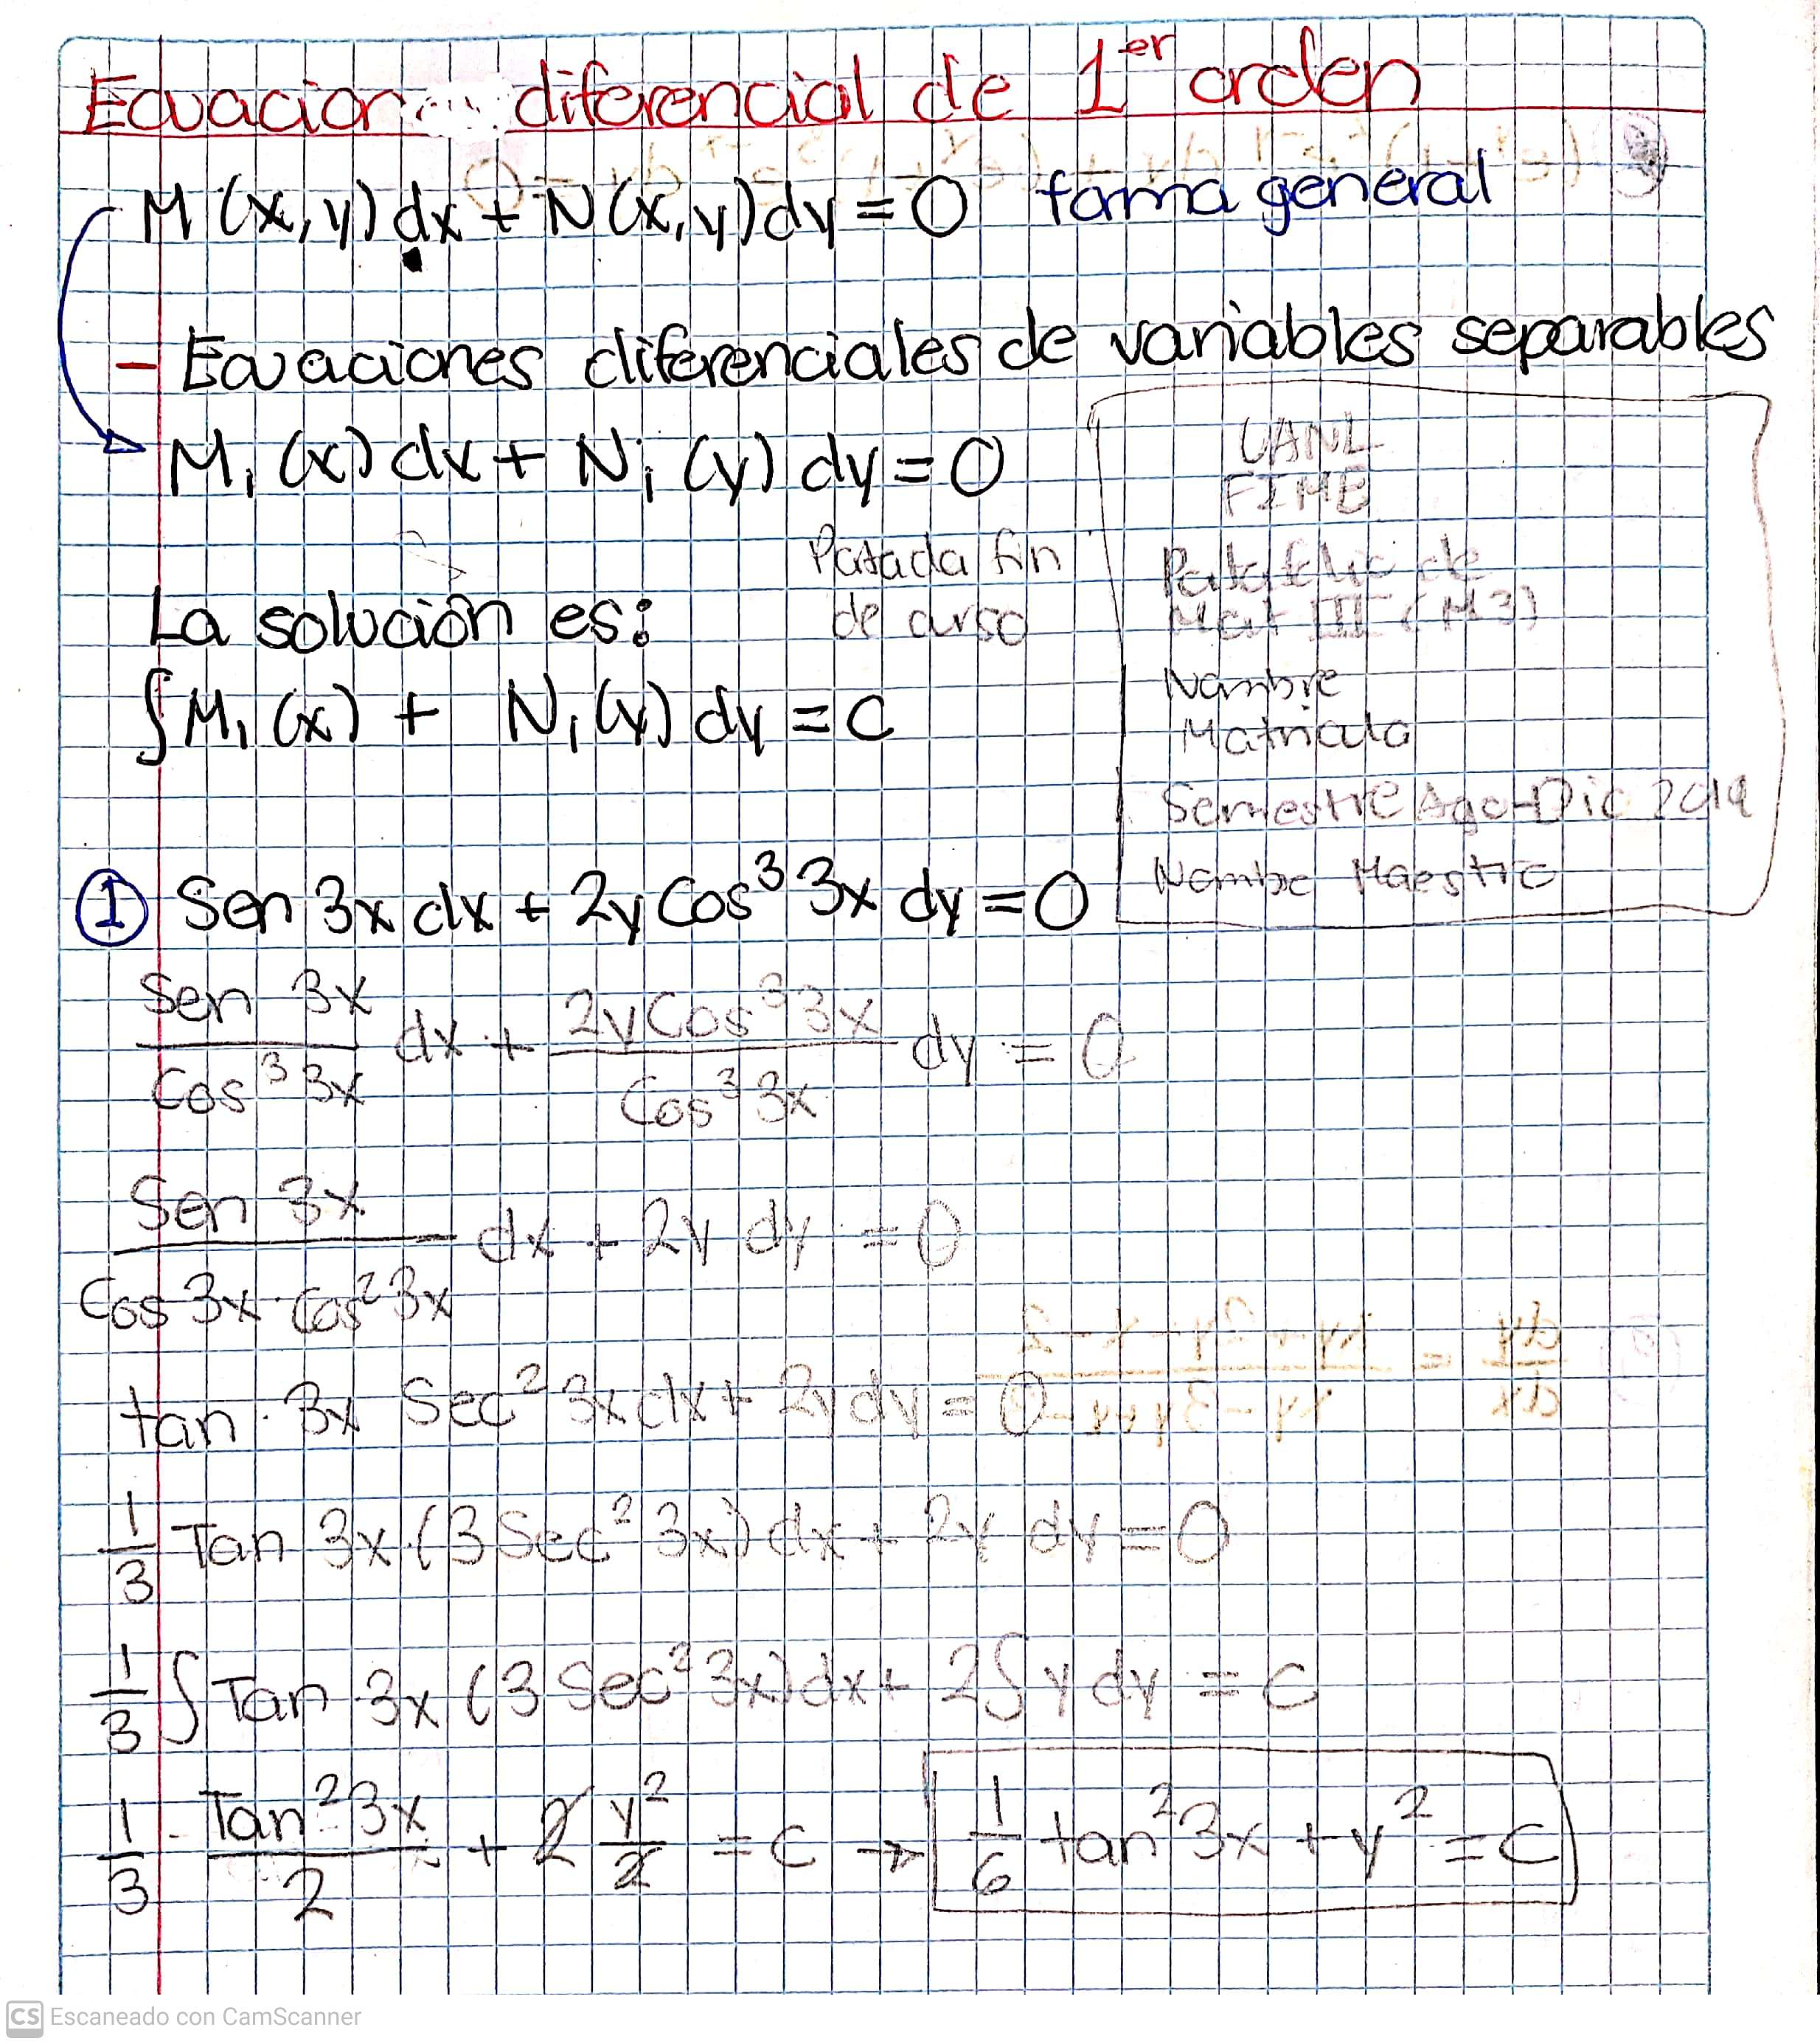 Ecuacion diferencial de 1er orden
M (x, y) dx + N (x, y) dy = 0 forma general
- Ecuaciones diferenciales de variables separables
M₁ (x) dx + N₁ (y) dy = 0
Portada fin
de curso
La solución es:
∫ M₁ (x) + N₁ (y) dy = C
UANL
FIME
Portafolio de
Mat III (M3)
Nombre
Matricula
Semestre Ago-Dic 2019
Nombre Maestro
① Sen 3x dx + 2y Cos³ 3x dy = 0
Sen 3x / Cos³ 3x dx + 2y Cos³ 3x / Cos³ 3x dy = 0
Sen 3x / Cos 3x · Cos² 3x dx + 2y dy = 0
tan · 3x Sec² 3x dx + 2y dy = 0
1/3 Tan 3x · (3 Sec² 3x) dx + 2y dy = 0
1/3 ∫ Tan 3x (3 Sec² 3x) dx + 2 ∫ y dy = C
1/3 · Tan² 3x / 2 + 2 y²/2 = C → 1/6 tan² 3x + y² = C
CS Escaneado con CamScanner